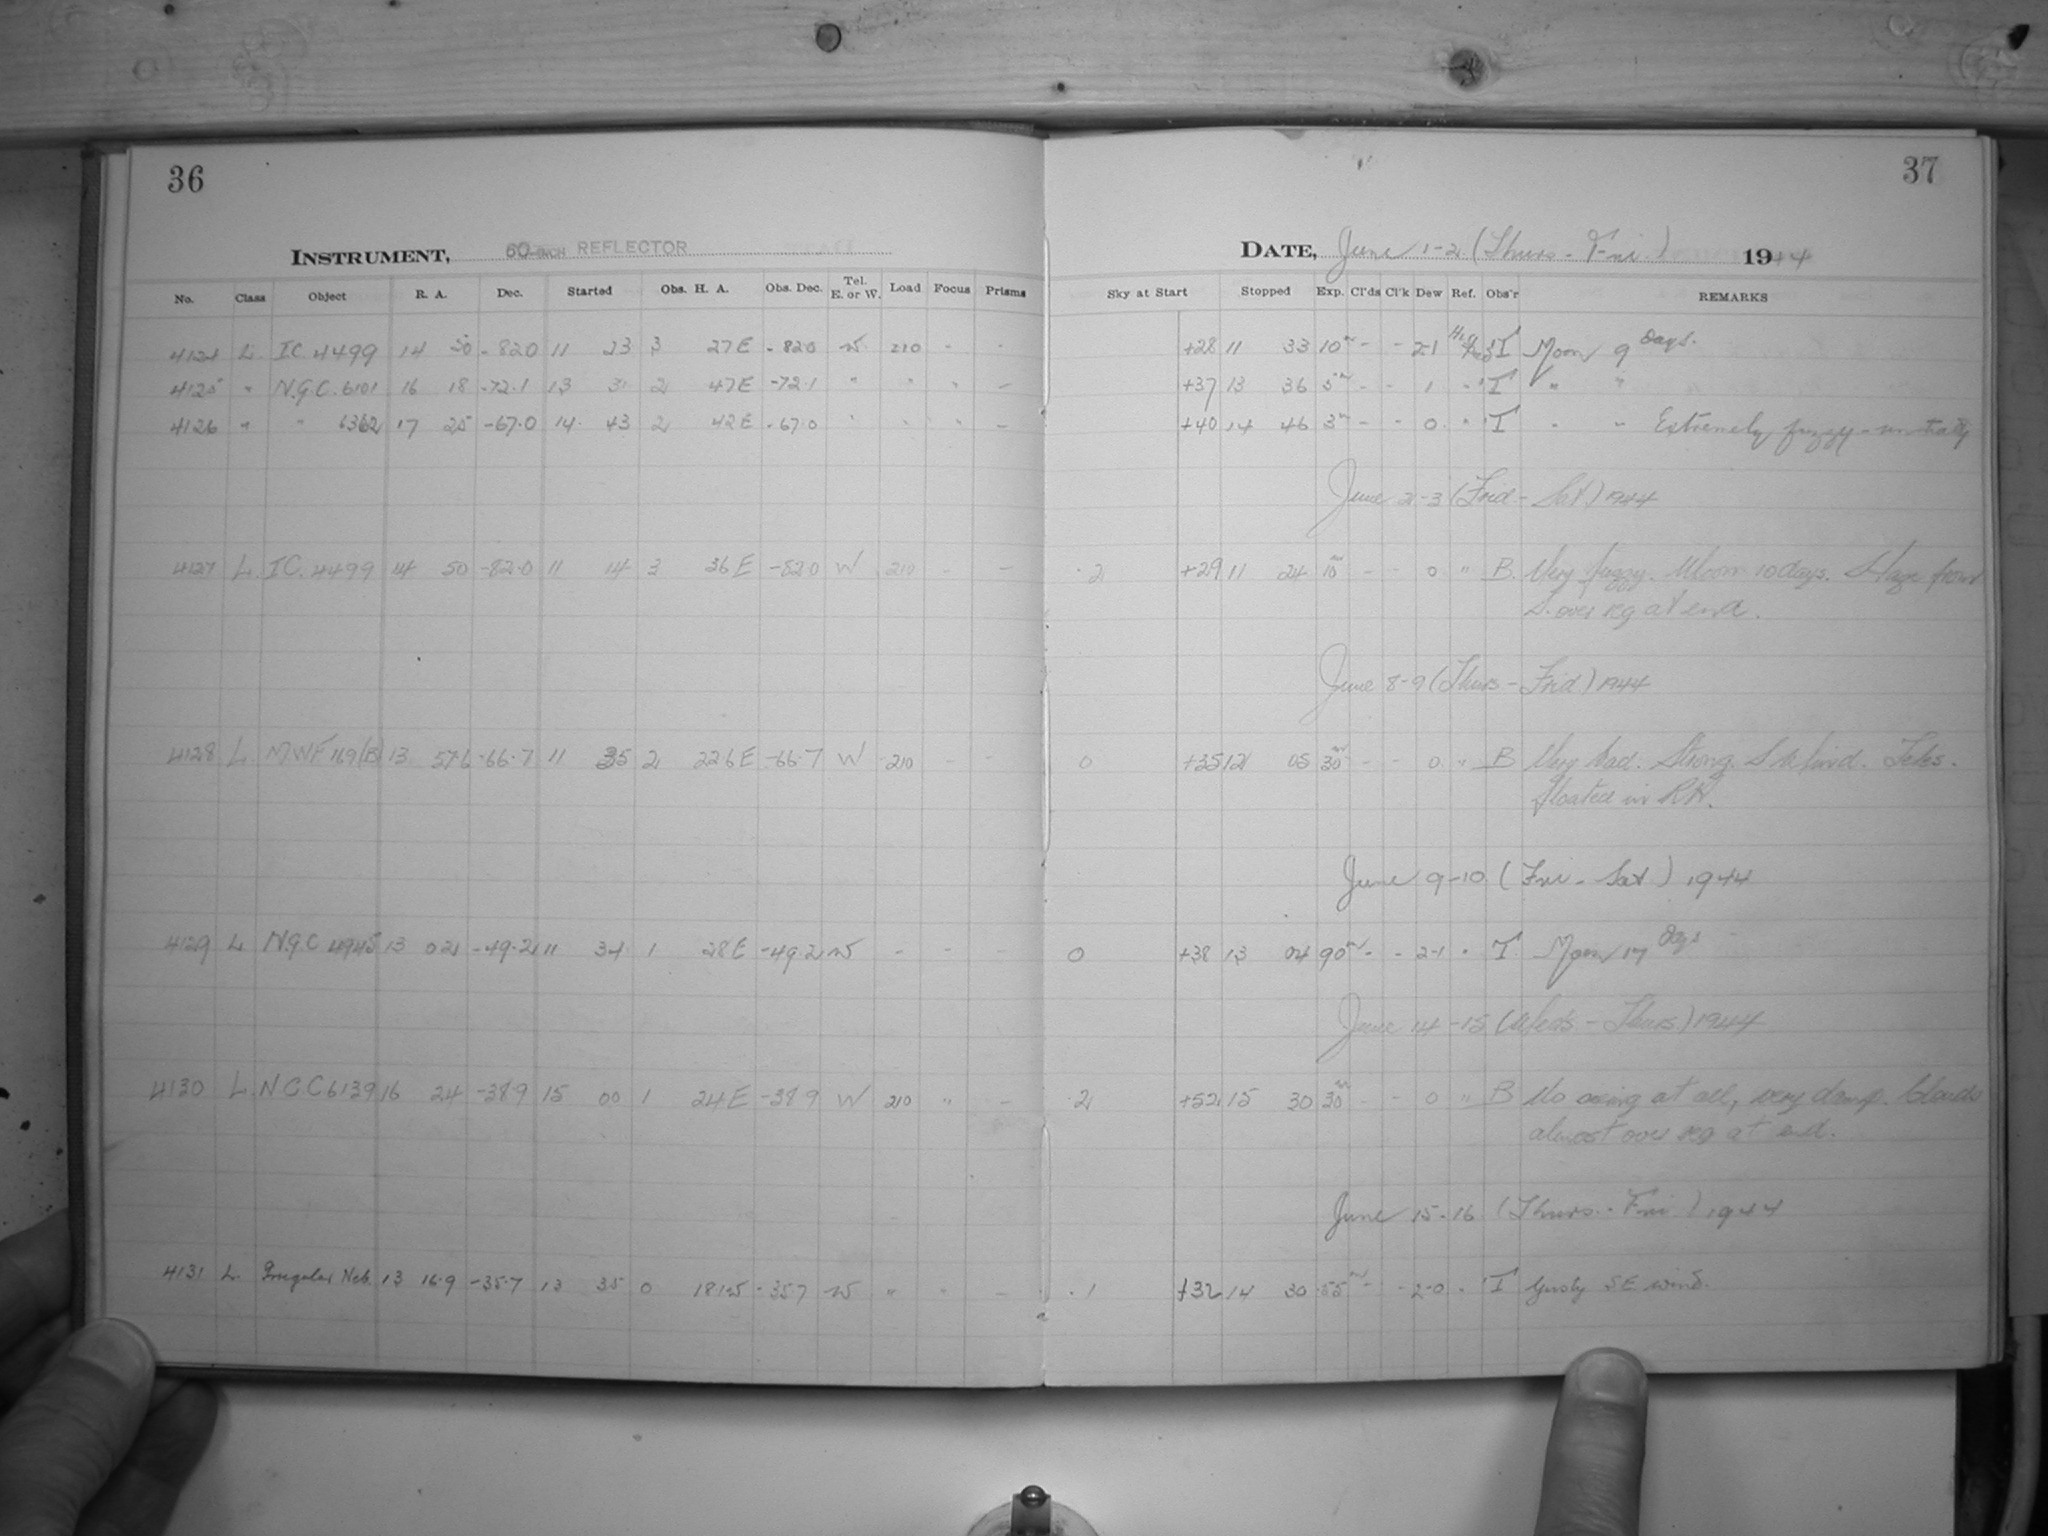 36
37
INSTRUMENT, 60-INCH REFLECTOR
DATE, June 1-2 (Thurs - Fri) 1944
No. Class Object R. A. Dec. Started Obs. H. A. Obs. Dec. Tel. E. or W. Load Focus Prisms Sky at Start Stopped Exp. Cl'ds Cl'k Dew Ref. Obs'r REMARKS
4124 L. IC 4499 14 50 -82.0 11 23 3 27E -82.0 W 210 - - +28 11 33 10m - - 2-1 T Moon 9 Days.
4125 " N.G.C. 6101 16 18 -72.1 13 31 2 47E -72.1 " " " - +37 13 36 5m - - 1 " T " "
4126 " " 6362 17 25 -67.0 14 43 2 42E -67.0 " " " - +40 14 46 3m - - 0 " T " " Extremely fuzzy
June 2-3 (Frid - Sat) 1944
4127 L. IC. 4499 14 50 -82.0 11 14 3 36E -82.0 W 210 - - 2 +29 11 24 10m - - 0 " B. Very fuzzy. Moon 10 days. Haze from
S. over reg at end.
June 8-9 (Thurs - Frid) 1944
4128 L. MWF 169(B) 13 57.6 -66.7 11 35 2 22.6E -66.7 W 210 - - 0 +35 12 05 30m - - 0 " B Very bad. Strong S.E. Wind. Teles.
floated in RA.
June 9-10 (Fri - Sat) 1944
4129 L N.G.C 4945 13 02 -49.2 11 34 1 28E -49.2 W - - - 0 +38 13 04 90m - - 2-1 " T. Moon 17 Days
June 14-15 (Weds - Thurs) 1944
4130 L. N.G.C 6139 16 24 -38.9 15 00 1 24E -38.9 W 210 " - 2 +52 15 30 30m - - 0 " B No seeing at all, very damp. Clouds
almost over reg at end.
June 15-16 (Thurs - Fri) 1944
4131 L. Irregular Neb. 13 16.9 -35.7 13 35 0 18 W -35.7 W " " - 1 +32 14 30 55m - - 2-0 " T Gusty S.E. wind.